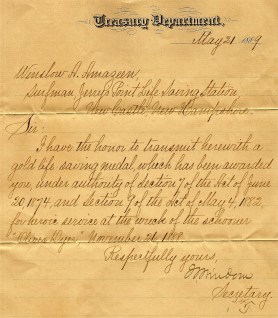 Treasury Department,
May 21 1889
Winslow A. Amazeen,
Surfman Jerry's Point Life Saving Station,
New Castle, New Hampshire.
Sir:
I have the honor to transmit herewith a
gold life saving medal, which has been awarded
you under authority of Section 7 of the Act of June
20, 1874, and Section 7 of the Act of May 4, 1882,
for heroic service at the wreck of the schooner
November 1888.
Respectfully yours,
Windom
Secretary.